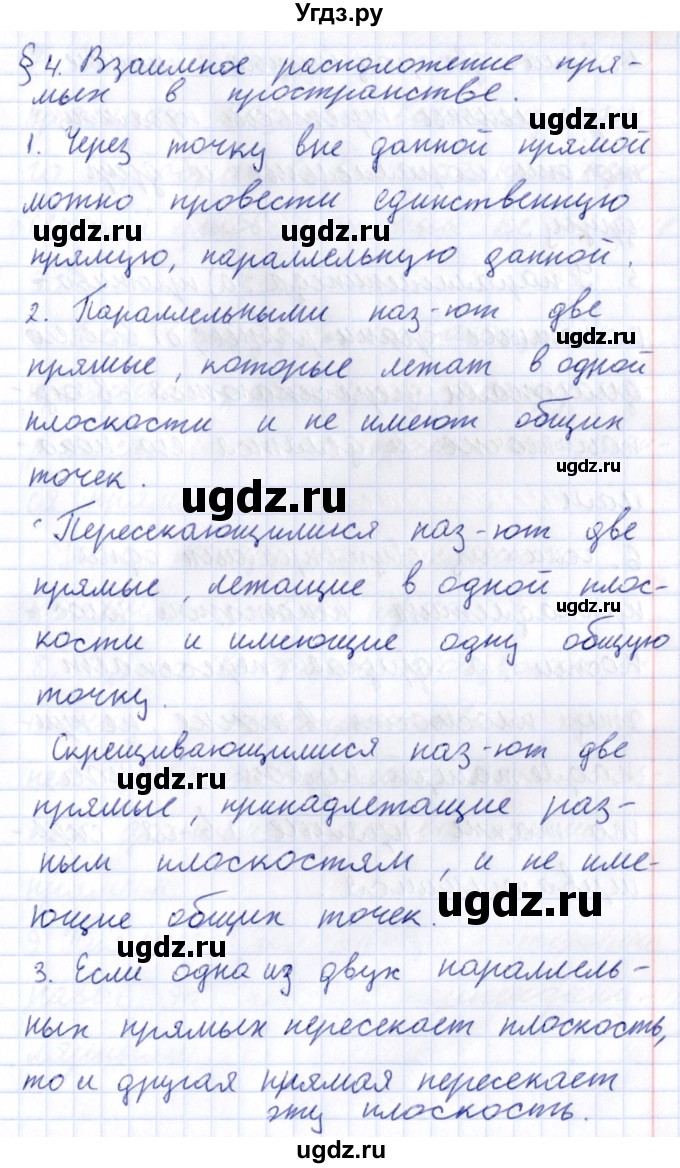 Угдз.ру
§ 4. Взаимное расположение пря-
мых в пространстве.
ugdz.ru
1. Через точку вне данной прямой
можно провести единственную
ugdz.ru ugdz.ru
прямую, параллельную данной.
2. Параллельными наз-ют две
ugdz.ru
прямые, которые лежат в одной
плоскости и не имеют общих
точек.
ugdz.ru
ugdz.ru
Пересекающимися наз-ют две
прямые, лежащие в одной плос-
ugdz.ru
кости и имеющие одну общую
точку.
Скрещивающимися наз-ют две
ugdz.ru
прямые, принадлежащие раз-
ным плоскостям, и не име-
ющие общих точек.
ugdz.ru
ugdz.ru
3. Если одна из двух параллель-
ных прямых пересекает плоскость,
то и другая прямая пересекает
ugdz.ru
эту плоскость.
ugdz.ru